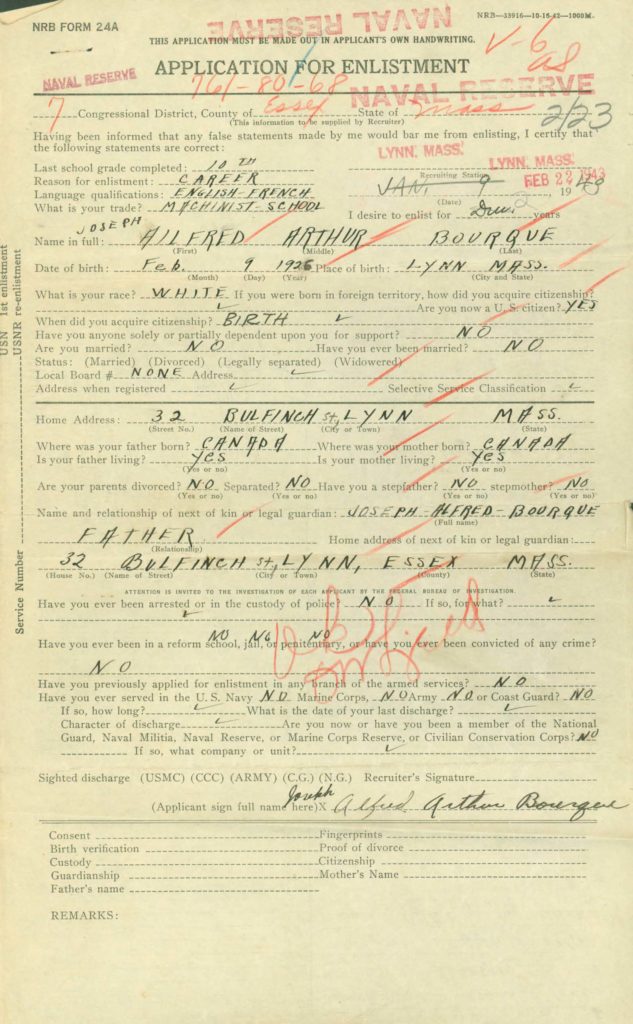 NRB FORM 24A
NAVAL RESERVE
NRB—33916—10-16-42—1000M.
THIS APPLICATION MUST BE MADE OUT IN APPLICANT'S OWN HANDWRITING.
NAVAL RESERVE
V-6
APPLICATION FOR ENLISTMENT
NAVAL RESERVE
761-80-68
NAVAL RESERVE
7 Congressional District, County of Essex State of Mass
(This information to be supplied by Recruiter)
2/23
Having been informed that any false statements made by me would bar me from enlisting, I certify that
the following statements are correct:
LYNN, MASS.
Last school grade completed: 10 TH
LYNN, MASS.
Reason for enlistment: CAREER
Recruiting Station
FEB 22 1943
Language qualifications: ENGLISH-FRENCH
JAN. 9 1943
(Date)
What is your trade? MACHINIST-SCHOOL
I desire to enlist for 2 years
JOSEPH
Name in full: AILFRED ARTHUR BOURQUE
(First) (Middle) (Last)
Date of birth: Feb. 9 1926 Place of birth: LYNN MASS.
(Month) (Day) (Year) (City and State)
What is your race? WHITE If you were born in foreign territory, how did you acquire citizenship?
Are you now a U.S. citizen? YES
When did you acquire citizenship? BIRTH
Have you anyone solely or partially dependent upon you for support? NO
Are you married? NO Have you ever been married? NO
Status: (Married) (Divorced) (Legally separated) (Widowered)
Local Board # NONE Address
Address when registered Selective Service Classification
Home Address: 32 BULFINCH St, LYNN MASS.
(Street No.) (Name of Street) (City or Town) (State)
Where was your father born? CANADA Where was your mother born? CANADA
Is your father living? Yes Is your mother living? Yes
(Yes or no) (Yes or no)
Are your parents divorced? NO Separated? NO Have you a stepfather? NO stepmother? NO
(Yes or no) (Yes or no) (Yes or no) (Yes or no)
Name and relationship of next of kin or legal guardian: JOSEPH-ALFRED-BOURQUE
(Full name)
FATHER Home address of next of kin or legal guardian:
(Relationship)
32 BULFINCH St, LYNN, ESSEX MASS.
(House No.) (Name of Street) (City or Town) (County) (State)
ATTENTION IS INVITED TO THE INVESTIGATION OF EACH APPLICANT BY THE FEDERAL BUREAU OF INVESTIGATION.
Have you ever been arrested or in the custody of police? NO If so, for what?
NO NO NO
Have you ever been in a reform school, jail, or penitentiary, or have you ever been convicted of any crime?
NO
Have you previously applied for enlistment in any branch of the armed services? NO
Have you ever served in the U.S. Navy NO Marine Corps, NO Army NO or Coast Guard? NO
If so, how long? What is the date of your last discharge?
Character of discharge Are you now or have you been a member of the National
Guard, Naval Militia, Naval Reserve, or Marine Corps Reserve, or Civilian Conservation Corps? NO
If so, what company or unit?
Sighted discharge (USMC) (CCC) (ARMY) (C.G.) (N.G.) Recruiter's Signature
Joseph
(Applicant sign full name here) X Alfred Arthur Bourque
Consent Fingerprints
Birth verification Proof of divorce
Custody Citizenship
Guardianship Mother's Name
Father's name
REMARKS:
USN 1st enlistment
USNR re-enlistment
Service Number